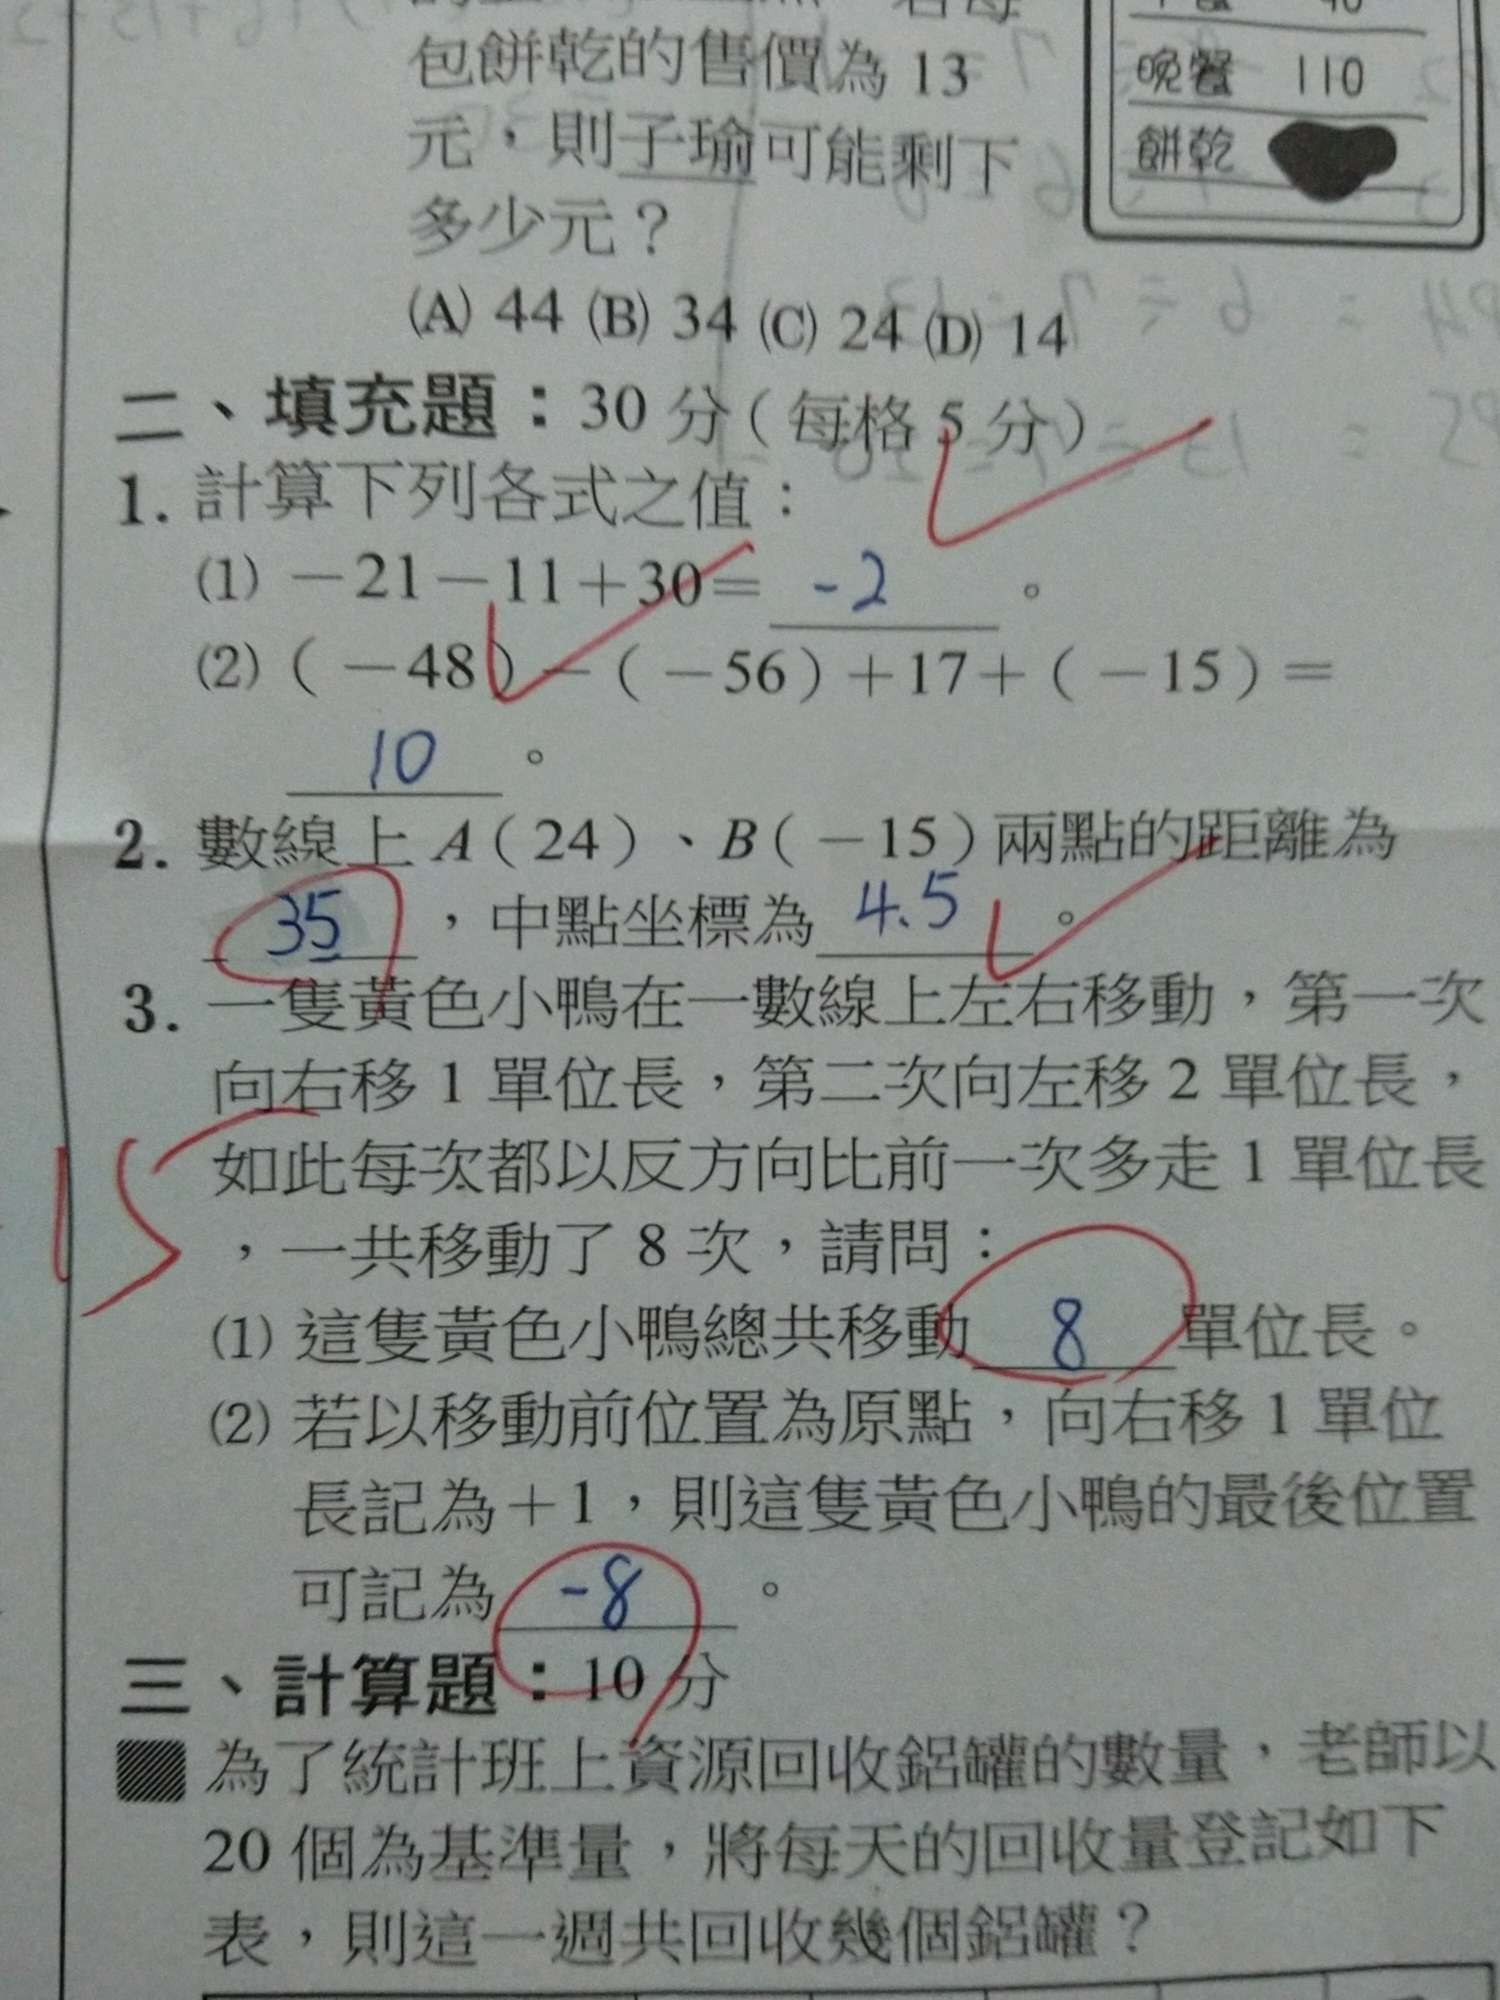 包餅乾的售價為 13
元，則子瑜可能剩下
多少元？
(A) 44 (B) 34 (C) 24 (D) 14
晚餐 110
餅乾
二、填充題：30 分（每格 5 分）
1. 計算下列各式之值：
(1) －21－11＋30＝ -2 。
(2)（－48）－（－56）＋17＋（－15）＝
10 。
2. 數線上 A（24）、B（－15）兩點的距離為
35 ，中點坐標為 4.5 。
3. 一隻黃色小鴨在一數線上左右移動，第一次
向右移 1 單位長，第二次向左移 2 單位長，
如此每次都以反方向比前一次多走 1 單位長
，一共移動了 8 次，請問：
15
(1) 這隻黃色小鴨總共移動 8 單位長。
(2) 若以移動前位置為原點，向右移 1 單位
長記為＋1，則這隻黃色小鴨的最後位置
可記為 -8 。
三、計算題：10 分
為了統計班上資源回收鋁罐的數量，老師以
20 個為基準量，將每天的回收量登記如下
表，則這一週共回收幾個鋁罐？